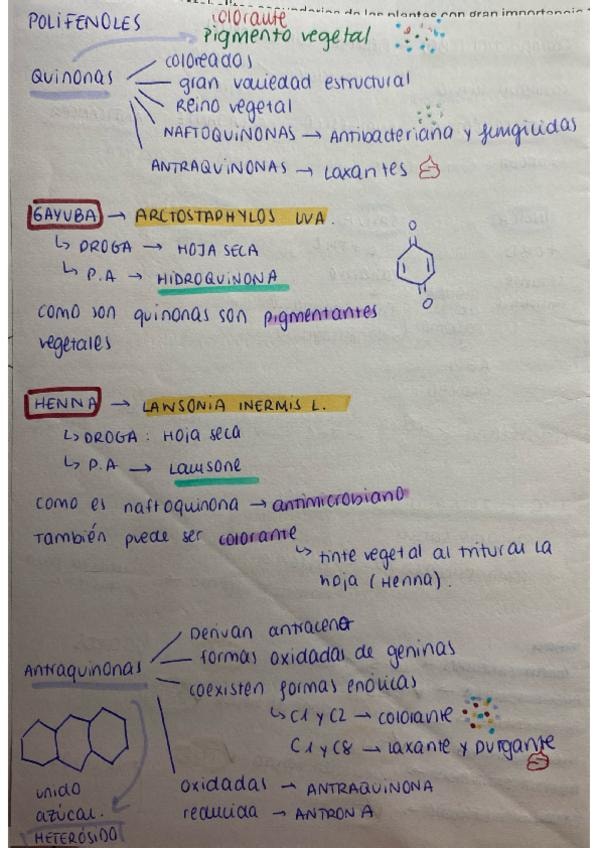 secundarios de las plantas con gran importancia
POLIFENOLES
colorante
pigmento vegetal
Quinonas
coloreados
gran variedad estructural
Reino vegetal
NAFTOQUINONAS → Antibacteriana y fungicidas
ANTRAQUINONAS → Laxantes
GAYUBA → ARCTOSTAPHYLOS UVA.
↳ DROGA → HOJA SECA
↳ P.A → HIDROQUINONA
O
O
como son quinonas son pigmentantes
vegetales
HENNA → LAWSONIA INERMIS L.
↳ DROGA : Hoja seca
↳ P.A → Lawsone
como es naftoquinona → antimicrobiano
También puede ser colorante
↳ tinte vegetal al triturar la
hoja (Henna).
Antraquinonas
Derivan antraceno
formas oxidadas de geninas
coexisten formas enólicas
↳ C1 y C2 → colorante
C1 y C8 → laxante y purgante
unido
azúcar.
HETERÓSIDO
oxidadas → ANTRAQUINONA
reducida → ANTRONA